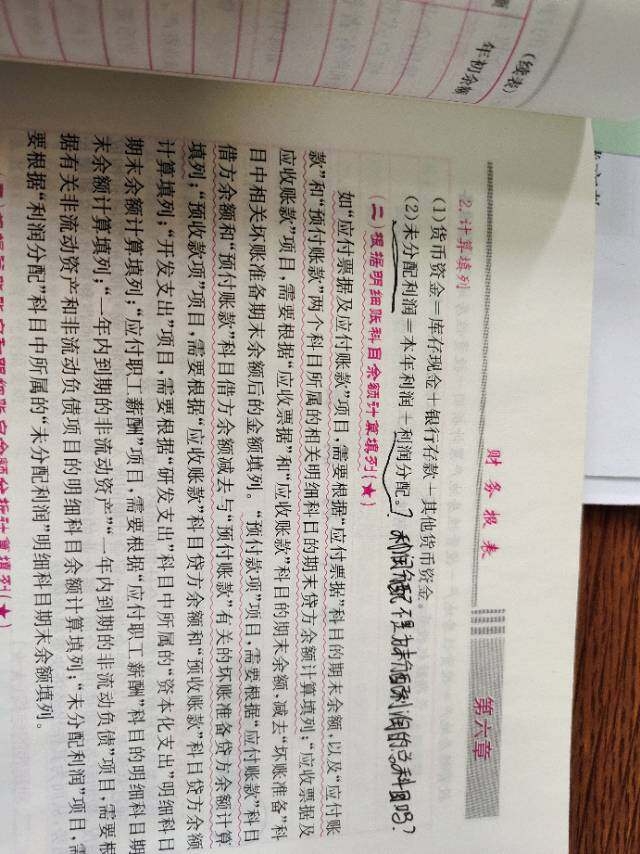 (续表)
年初余额
财务报表
第六章
2. 计算填列
(1)货币资金=库存现金+银行存款+其他货币资金。
(2)未分配利润=本年利润+利润分配。? 利润分配不是为未分配利润的总科目吗?
(二)根据明细账科目余额计算填列(★)
如“应付票据及应付账款”项目,需要根据“应付票据”科目的期末余额,以及“应付账
款”和“预付账款”两个科目所属的相关明细科目的期末贷方余额计算填列;“应收票据及
应收账款”项目,需要根据“应收票据”和“应收账款”科目的期末余额,减去“坏账准备”科
目中相关坏账准备期末余额后的金额填列。“预付款项”项目,需要根据“应付账款”科目
借方余额和“预付账款”科目借方余额减去与“预付账款”有关的坏账准备贷方余额计算
填列;“预收款项”项目,需要根据“应收账款”科目贷方余额和“预收账款”科目贷方余额
计算填列;“开发支出”项目,需要根据“研发支出”科目中所属的“资本化支出”明细科目
期末余额计算填列;“应付职工薪酬”项目,需要根据“应付职工薪酬”科目的明细科目期
末余额计算填列;“一年内到期的非流动资产”“一年内到期的非流动负债”项目,需要根
据有关非流动资产和非流动负债项目的明细科目余额计算填列;“未分配利润”项目,需
要根据“利润分配”科目中所属的“未分配利润”明细科目期末余额填列。